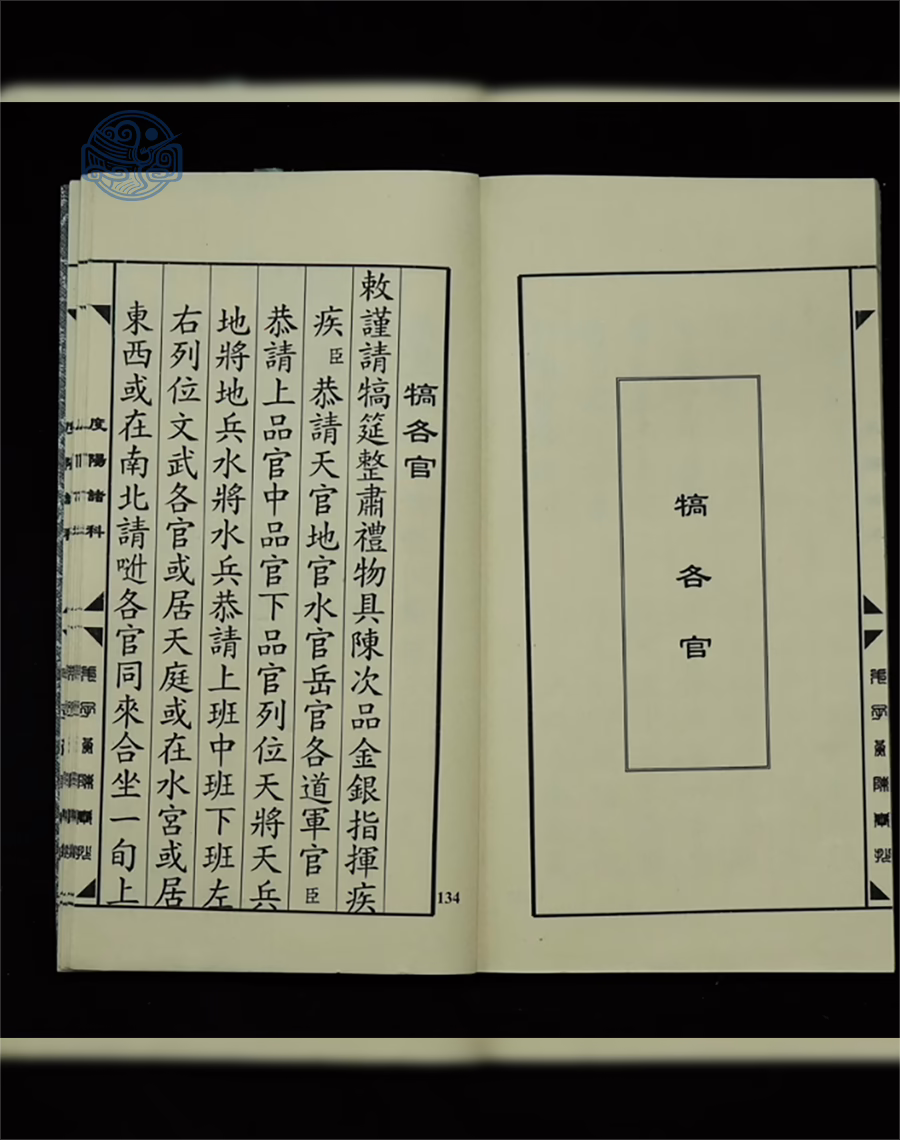 犒各官
犒各官
敕謹請犒筵整肅禮物具陳次品金銀指揮疾
疾臣恭請天官地官水官岳官各道軍官臣
恭請上品官中品官下品官列位天將天兵
地將地兵水將水兵恭請上班中班下班左
右列位文武各官或居天庭或在水宮或居
東西或在南北請𨑜各官同來合坐一旬上
度陽諸科
134